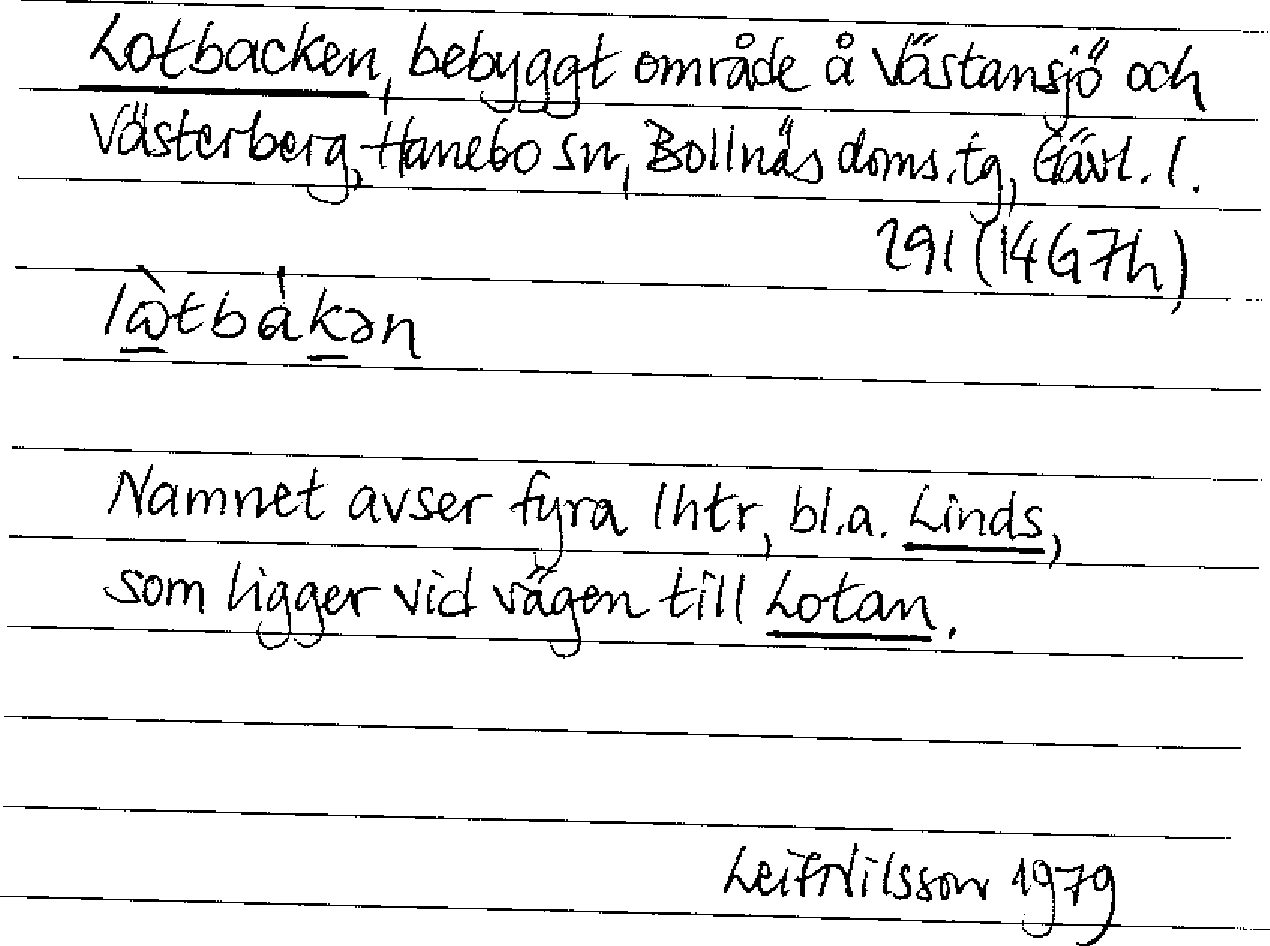 Lotbacken, bebyggt område å Västansjö och
Västerberg, Hanebo sn, Bollnäs doms.tg, Gävl. l.
291 (14G7h)
Namnet avser fyra lhtr, bl.a. Linds,
som ligger vid vägen till Lotan.
Leif Nilsson 1979